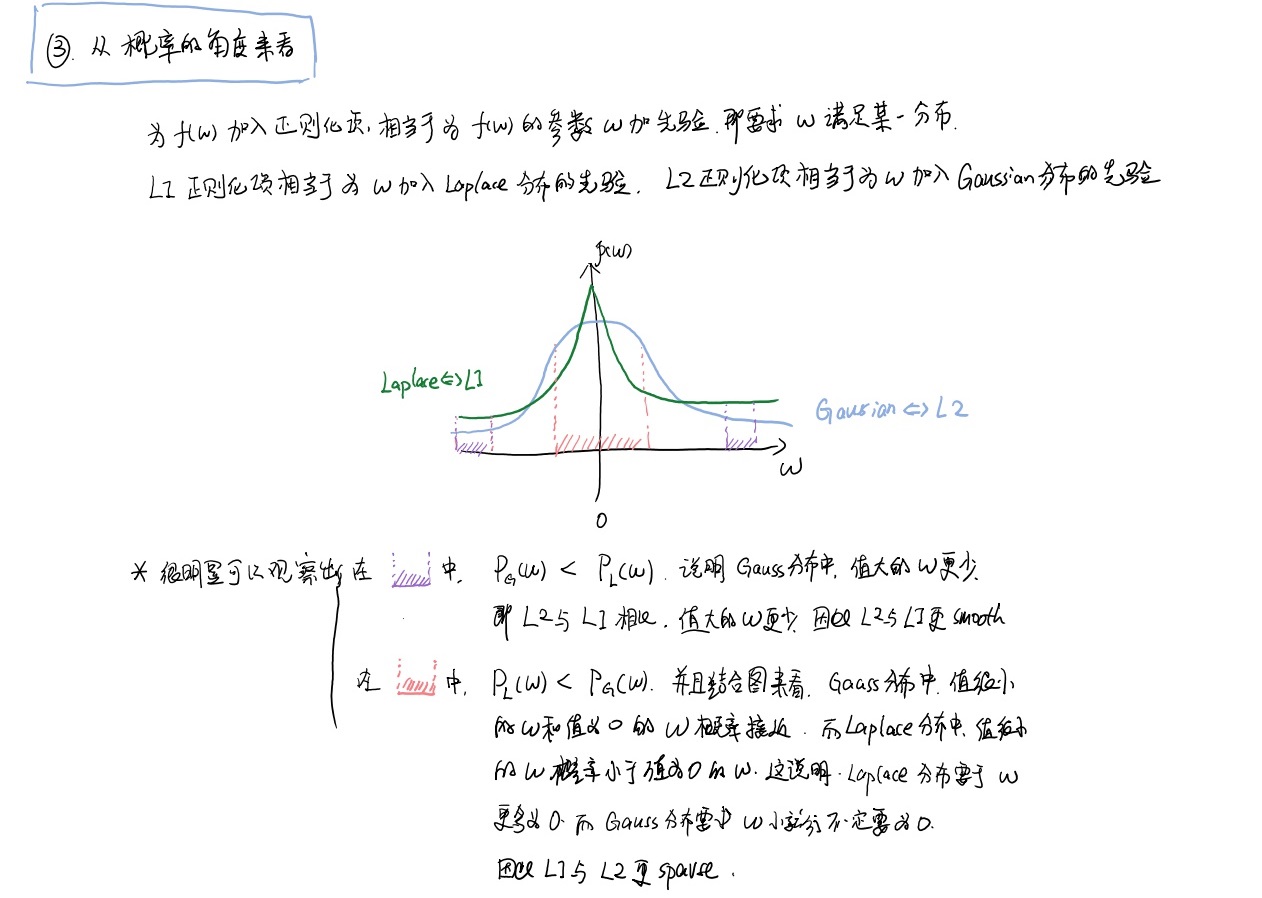 ③. 从概率的角度来看
为 f(w) 加入正则化项, 相当于为 f(w) 的参数 w 加先验. 即要求 w 满足某一分布.
L1 正则化项相当于为 w 加入 Laplace 分布的先验. L2 正则化项相当于为 w 加入 Gaussian 分布的先验
p(w)
Laplace⇔L1
Gaussian⇔L2
w
0
* 很明显可以观察出 在 中, P_G(w) < P_L(w). 说明 Gauss 分布中, 值大的 w 更少.
即 L2 与 L1 相比, 值大的 w 更少. 因此 L2 与 L1 更 smooth
在 中, P_L(w) < P_G(w). 并且结合图来看, Gauss 分布中, 值很小
的 w 和值为 0 的 w 概率接近. 而 Laplace 分布中, 值很小
的 w 概率小于值为 0 的 w. 这说明. Laplace 分布要于 w
更多为 0. 而 Gauss 分布要求 w 小 不一定要为 0.
因此 L1 与 L2 更 sparse.